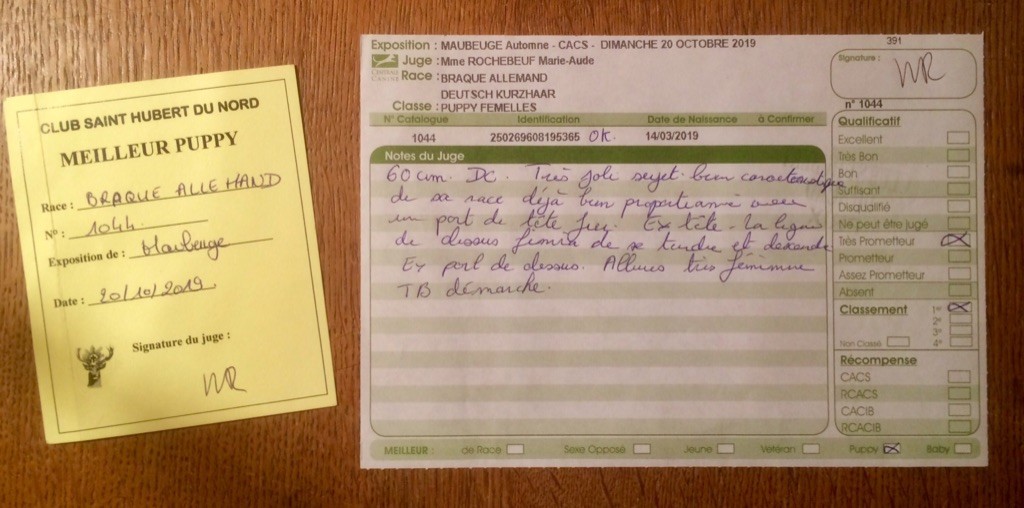 CLUB SAINT HUBERT DU NORD
MEILLEUR PUPPY
Race : BRAQUE ALLEMAND
N° : 1044
Exposition de : Maubeuge
Date : 20/10/2019
Signature du juge :
MR
391
Exposition : MAUBEUGE Automne - CACS - DIMANCHE 20 OCTOBRE 2019
Juge : Mme ROCHEBEUF Marie-Aude
Race : BRAQUE ALLEMAND
DEUTSCH KURZHAAR
Classe : PUPPY FEMELLES
CENTRALE CANINE
Signature :
MR
n° 1044
N° Catalogue Identification Date de Naissance à Confirmer
1044 250269608195365 OK. 14/03/2019
Notes du Juge
60 cm. DC. Très joli sujet bien caractéristique
de sa race déjà bien proportionné avec
un port de tête fier. Ex tête. La ligne
de dessus finira de se tendre et descendre
Ex port de dessus. Allures très féminine
TB démarche.
Qualificatif
Excellent
Très Bon
Bon
Suffisant
Disqualifié
Ne peut être jugé
Très Prometteur X
Prometteur
Assez Prometteur
Absent
Classement 1er X
2e
3e
Non Classé 4e
Récompense
CACS
RCACS
CACIB
RCACIB
MEILLEUR : de Race Sexe Opposé Jeune Vétéran Puppy X Baby